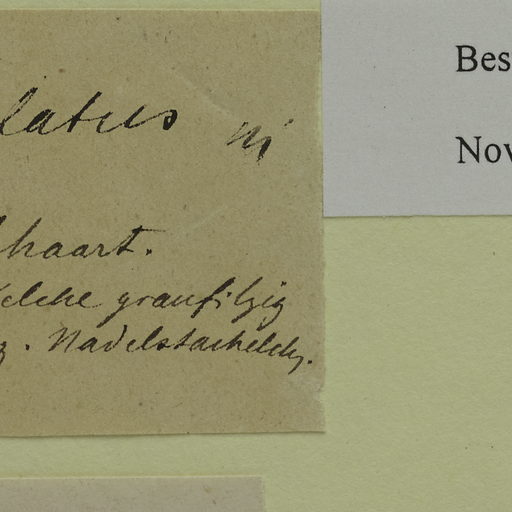 latus m
haart.
elche graufilzig
g. Nadelstacheldry.
Bes
Nov